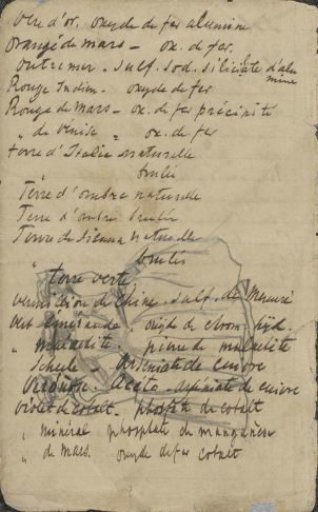 Ocre d'or. oxyde de fer alumine
Orangé de mars - ox. de fer.
Outremer. sulf. sod. silicate d'alumine
Rouge Indien. oxyde de fer
Rouge de Mars - ox. de fer précipité
" de Vénise " ox. de fer
terre d'Italie naturelle
" brulée
Terre d'ombre naturelle
Terre d'ombre brulée
Terre de Sienna naturelle
" brulée
terre verte
Vermillion de Chine. sulf. de Mercure
Vert émeraude. oxyde de chrom hyd.
" malachite. pierre de malachite
" Scheele - Arseniate de cuivre
" Véronèse. Aceto-arseniate de cuivre
Violet de cobalt - phosphate de cobalt
" minéral phosphate de manganèse
" de Mars oxyde de fer cobalt